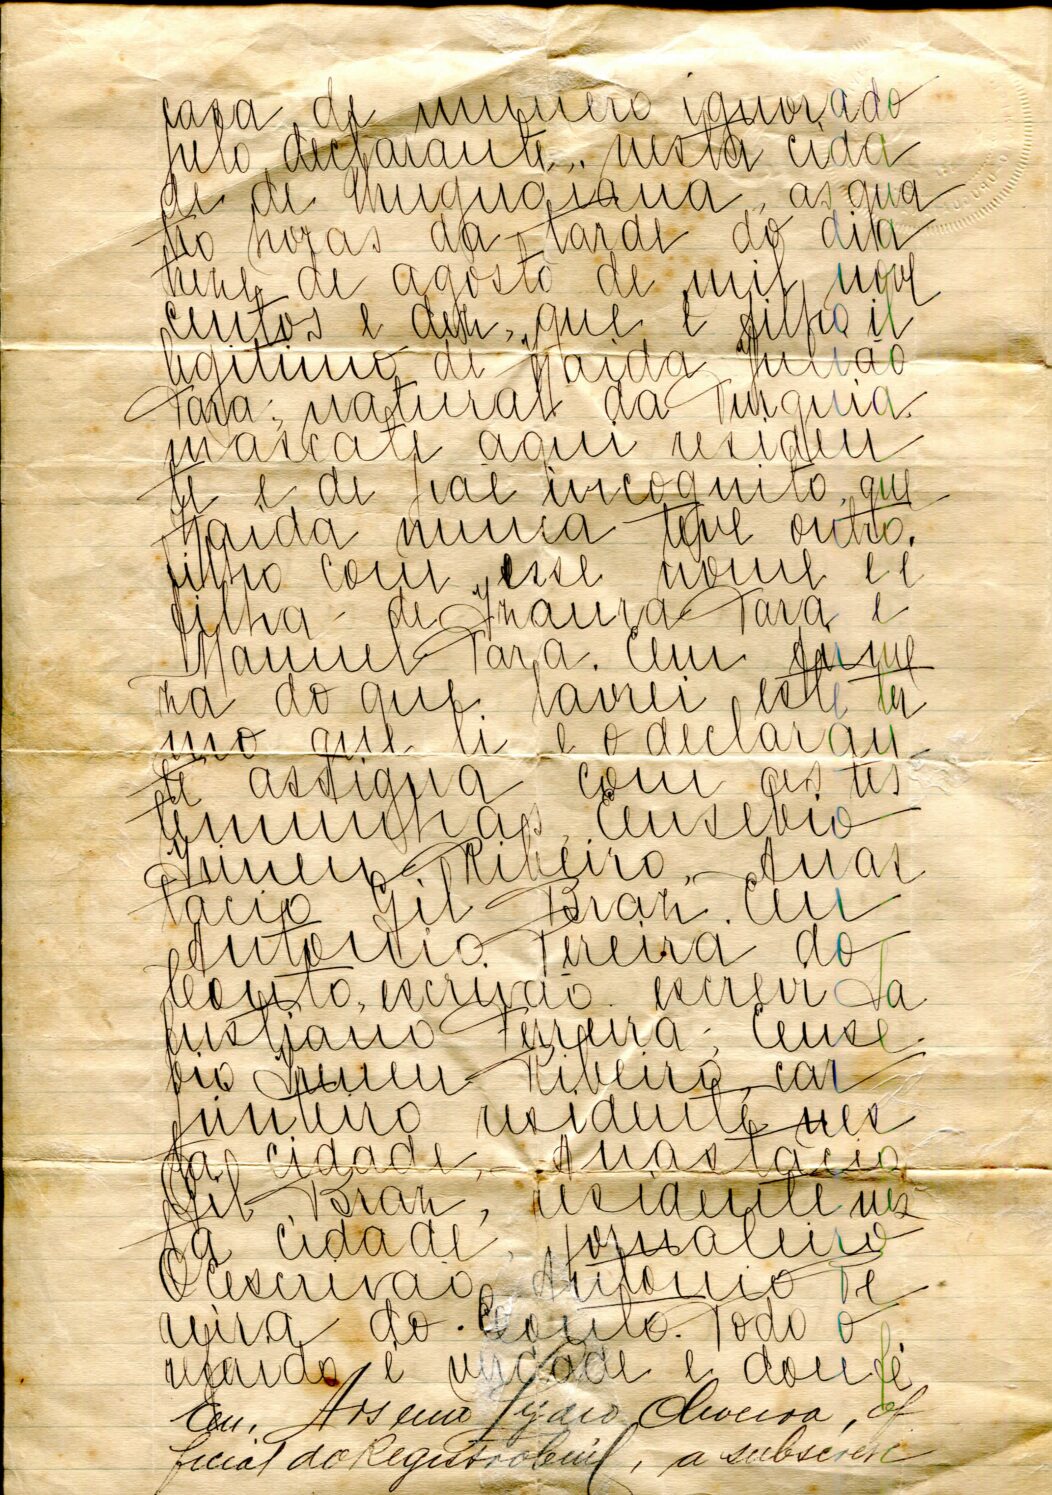 casa de numero ignorado
pelo declarante, nesta cida
de de Uruguaiana, as qua
tro horas da tarde do dia
treze de agosto de mil nove
centos e dez, que é filho il
legitimo de Haida Julião
Tara, natural da Turquia
mascate aqui residen
te e de pae incognito, que
Haida nunca teve outro
filho com esse nome e é
filha de Thaura Tara e
Manuel Tara. Em firme
za do que, lavrei este ter
mo que li e o declaran
te assigna com as tes
temunhas, Eusebio
Ribeiro, Anas
tacio Gil Braz. Eu
Antonio Pereira do
Couto, escrivão escrevi Sa
lustiano Ferreira, Euse
bio Ribeiro, car
pinteiro residente nes
ta cidade, Anastacio
Gil Braz, residente nes
ta cidade, jornaleiro
O escrivão, Antonio Pe
reira do Couto. Todo o
referido é verdade e dou fé
Eu, Oliveira, of
ficial do Registro Civil, a subscrevi